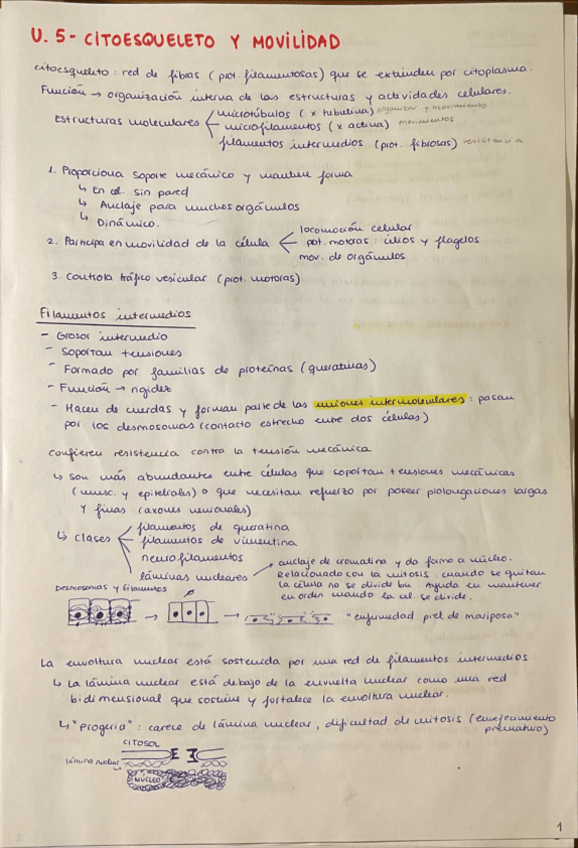 U. 5 - CITOESQUELETO Y MOVILIDAD
citoesqueleto: red de fibras (prot. filamentosas) que se extienden por citoplasma.
Función → organización interna de las estructuras y actividades celulares.
Estructuras moleculares
microtúbulos (x tubulina) organizar y movimiento
microfilamentos (x actina) movimientos
filamentos intermedios (prot. fibrosas) resistencia
1. Proporciona soporte mecánico y mantiene forma
↳ En cel. sin pared
↳ Anclaje para muchos orgánulos
↳ Dinámico.
2. Participa en movilidad de la célula
locomoción celular
pot. motoras: cilios y flagelos
mov. de orgánulos
3. Controla tráfico vesicular (prot. motoras)
Filamentos intermedios
- Grosor intermedio
- Soportan tensiones
- Formado por familias de proteínas (queratinas)
- Función → rigidez
- Hacen de cuerdas y forman parte de las uniones intermoleculares: pasan
por los desmosomas (contacto estrecho entre dos células)
Confieren resistencia contra la tensión mecánica
↳ Son más abundantes entre células que soportan tensiones mecánicas
(musc. y epiteliales) o que necesitan refuerzo por poseer prolongaciones largas
y finas (axones neuronales)
↳ clases
filamentos de queratina
filamentos de vimentina
neurofilamentos
láminas nucleares
anclaje de cromatina y da forma a núcleo.
Relacionado con la mitosis, cuando se quitan
la célula no se divide bn. Ayuda en mantener
en orden cuando la cel. se divide.
Desmosomas y filamentos
"enfermedad piel de mariposa"
La envoltura nuclear está sostenida por una red de filamentos intermedios
↳ La lámina nuclear está debajo de la envuelta nuclear como una red
bidimensional que sostiene y fortalece la envoltura nuclear.
↳ "Progeria": carece de lámina nuclear, dificultad de mitosis (envejecimiento
prematuro)
CITOSOL
lámina nuclear
NÚCLEO
1